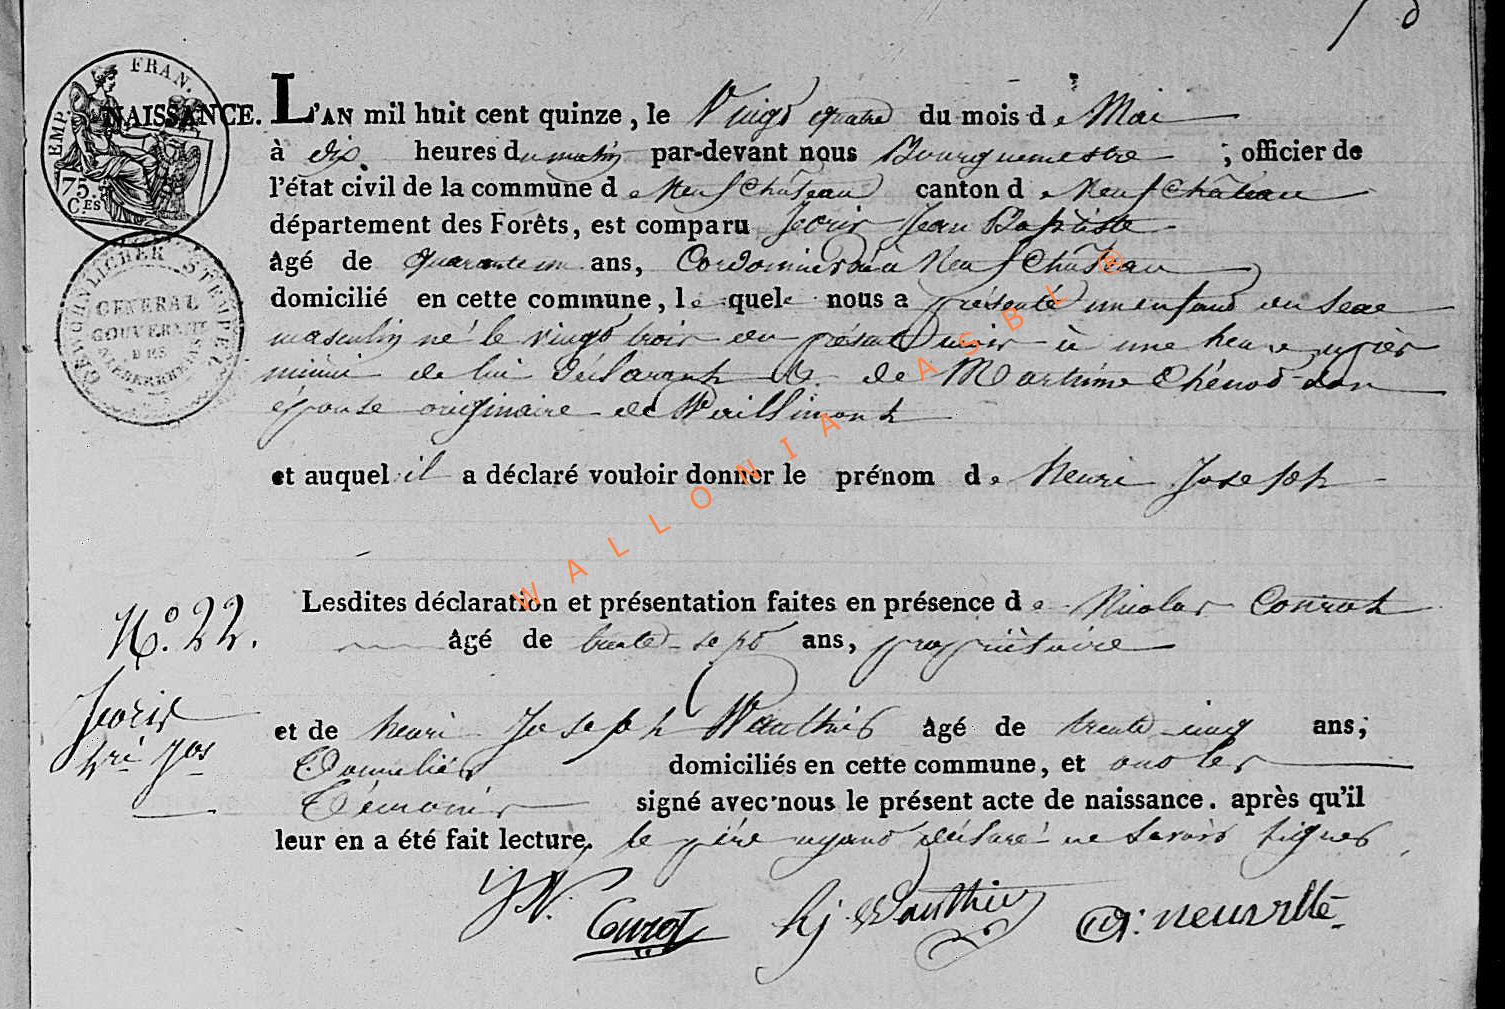 EMP. FRAN.
75.
C.ES
GENERAL
GOUVERNMT
DES
STEMPEL
NAISSANCE.
L'AN mil huit cent quinze, le Vingt quatre du mois de Mai
à dix heures du matin par-devant nous Bourguemestre ; officier de
l'état civil de la commune de Neufchâteau canton de Neufchâteau
département des Forêts, est comparu Jean Baptiste
âgé de quarante un ans, Cordonnier à Neufchâteau
domicilié en cette commune, le quel nous a présenté un enfant du sexe
masculin né le vingt trois du présent mois à une heure après
midi de lui déclarant & de Martine Chénot son
épouse originaire de Waillimont
et auquel il a déclaré vouloir donner le prénom de henri Joseph
Lesdites déclaration et présentation faites en présence de Nicolas Conrot
âgé de trente-sept ans, propriétaire
N.º 22.
et de henri Joseph Wauthier âgé de trente cinq ans,
hri Jos
domiciliés en cette commune, et ont les
Témoins signé avec nous le présent acte de naissance. après qu'il
leur en a été fait lecture. le père ayant déclaré ne savoir signer
N. Conrot hj Wauthier neuville
WALLONIA ASBL ®